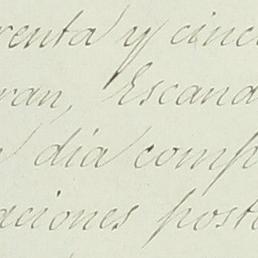 renta y cinc
ran, Escand
día comp
aciones poste